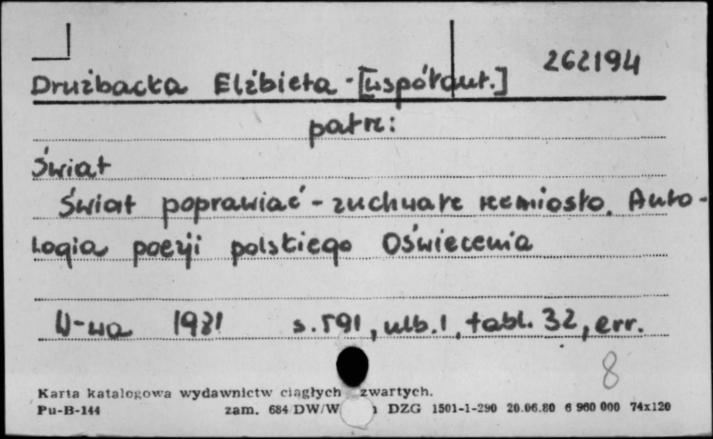 262194
Drużbacka Elżbieta - [współaut.]
patrz:
Świat
Świat poprawiać - zuchwałe rzemiosło. Anto-
logia poezji polskiego Oświecenia
W-wa 1981 s. 591, ulb. 1, tabl. 32, err.
8
Karta katalogowa wydawnictw ciągłych zwartych.
Pu-B-144 zam. 684/DW/W DZG 1501-1-290 20.06.80 6 960 000 74x120